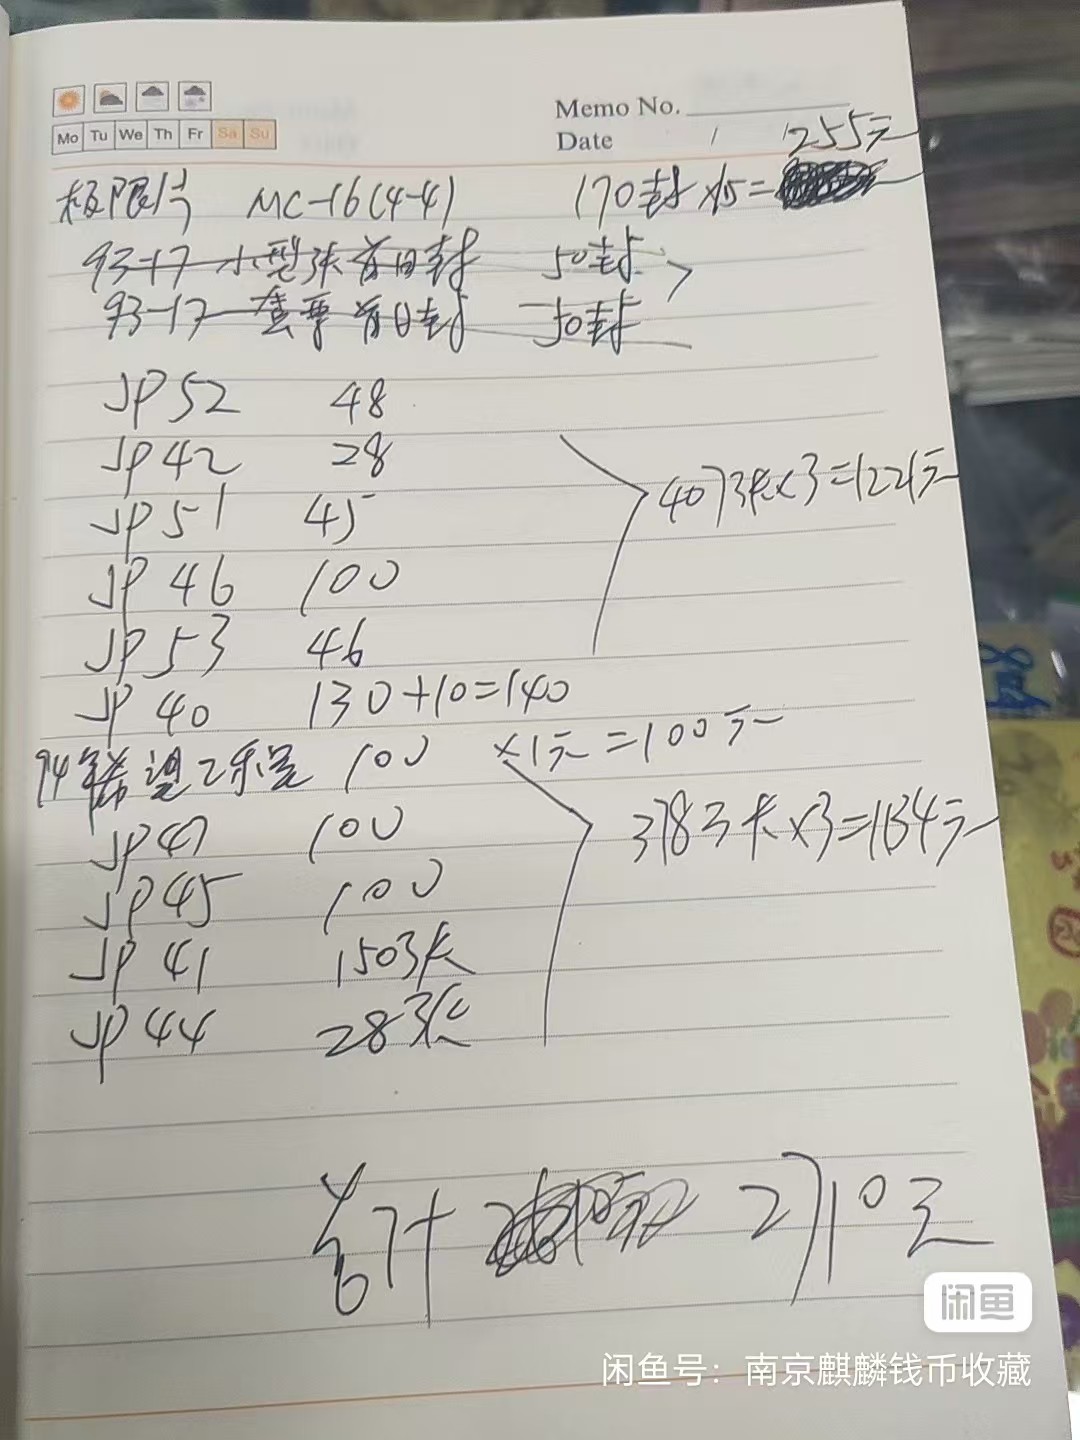 Memo No.
Mo Tu We Th Fr Sa Su
Date
255元
极限片 MC-16(4-4) 170封×1.5=
93-17 小型张首日封 50封
93-17 套票首日封 50封
JP52 48
JP42 28
JP51 45
407张×3=1221元
JP46 100
JP53 46
JP40 130+10=140
94年希望工程 100 ×1元=100元
JP47 100
378张×3=1134元
JP45 100
JP41 150张
JP44 28张
总计 2710元
闲鱼
闲鱼号：南京麒麟钱币收藏